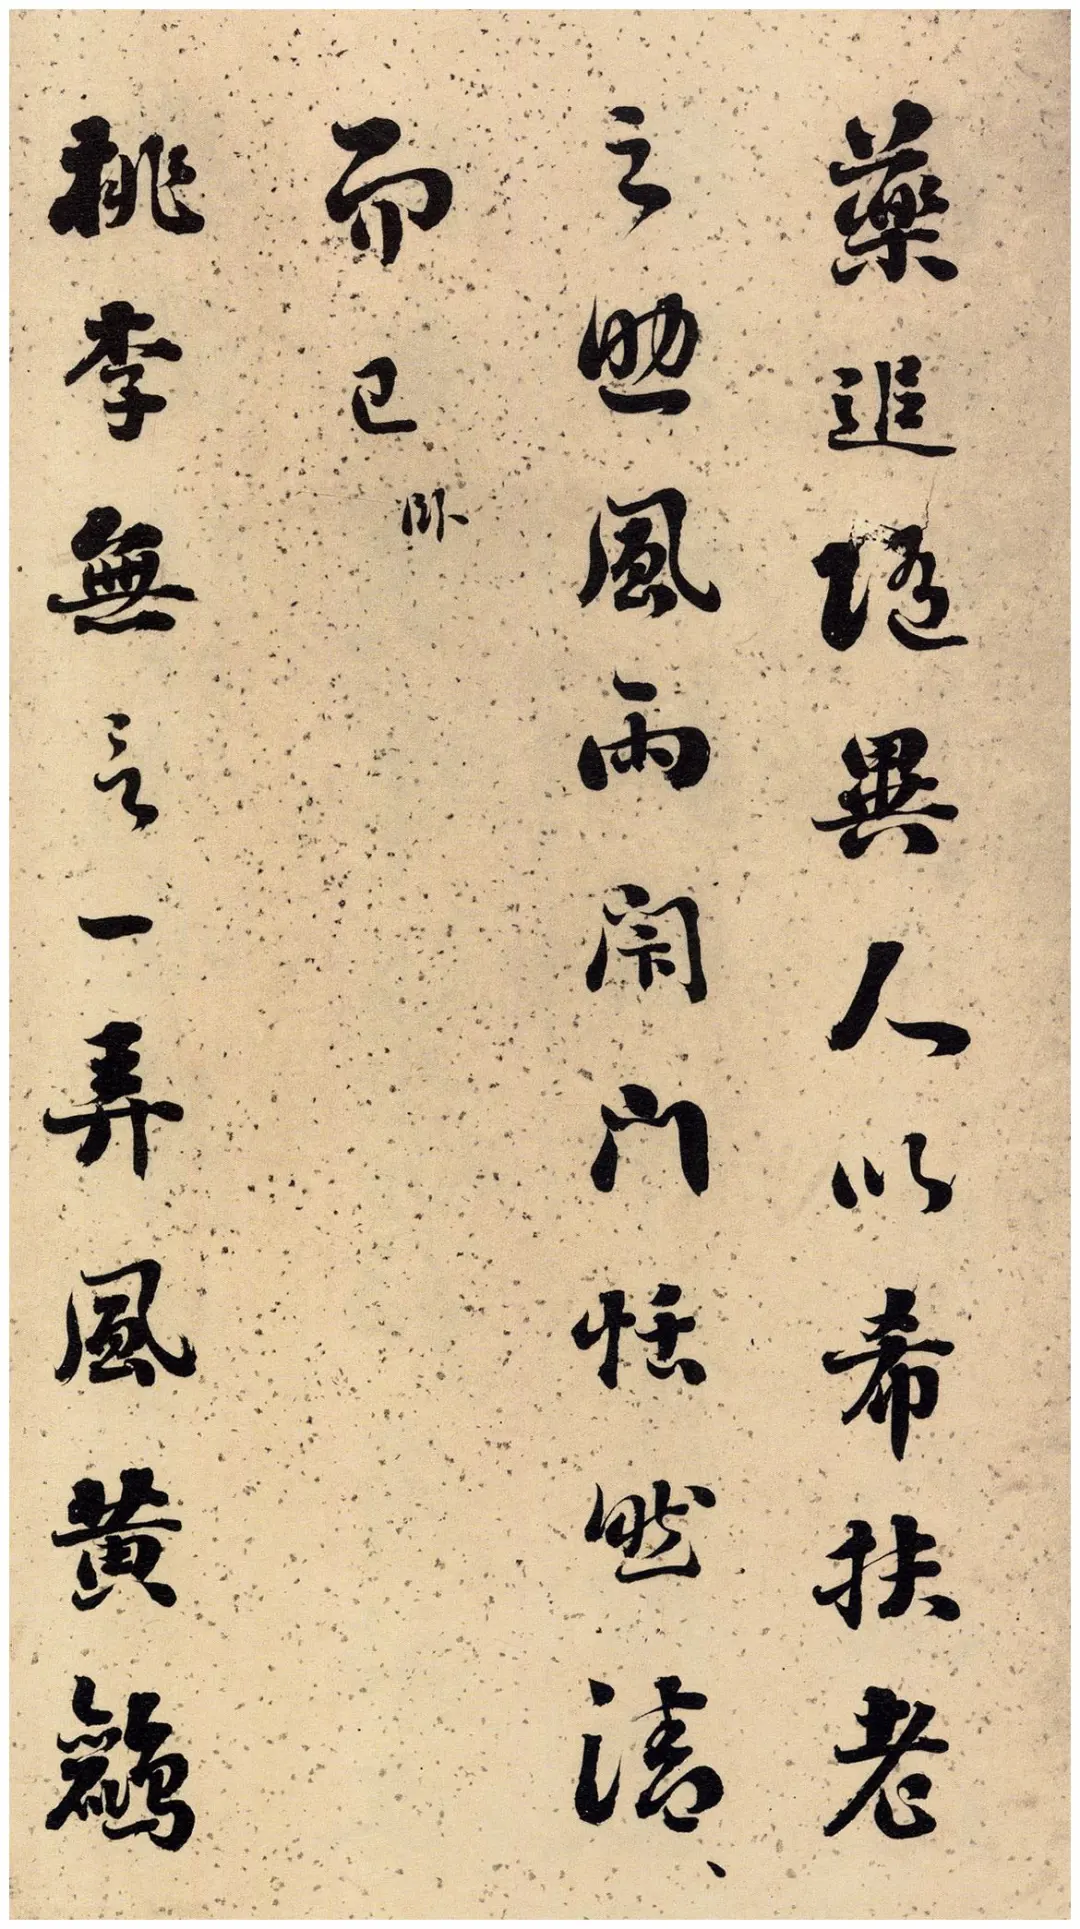 藥追随異人以希扶老
之助風雨閇門恬然清、
而已
臥
桃李無言一再風黄鸝